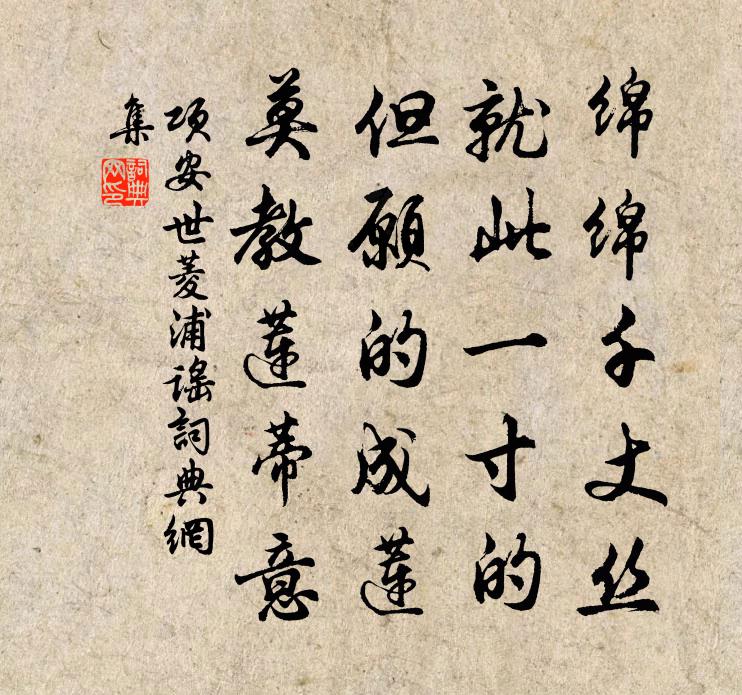 绵绵千丈丝
就此一寸的
但愿的成莲
莫教莲蒂意
项安世菱浦谣詞典網
集
詞典網印